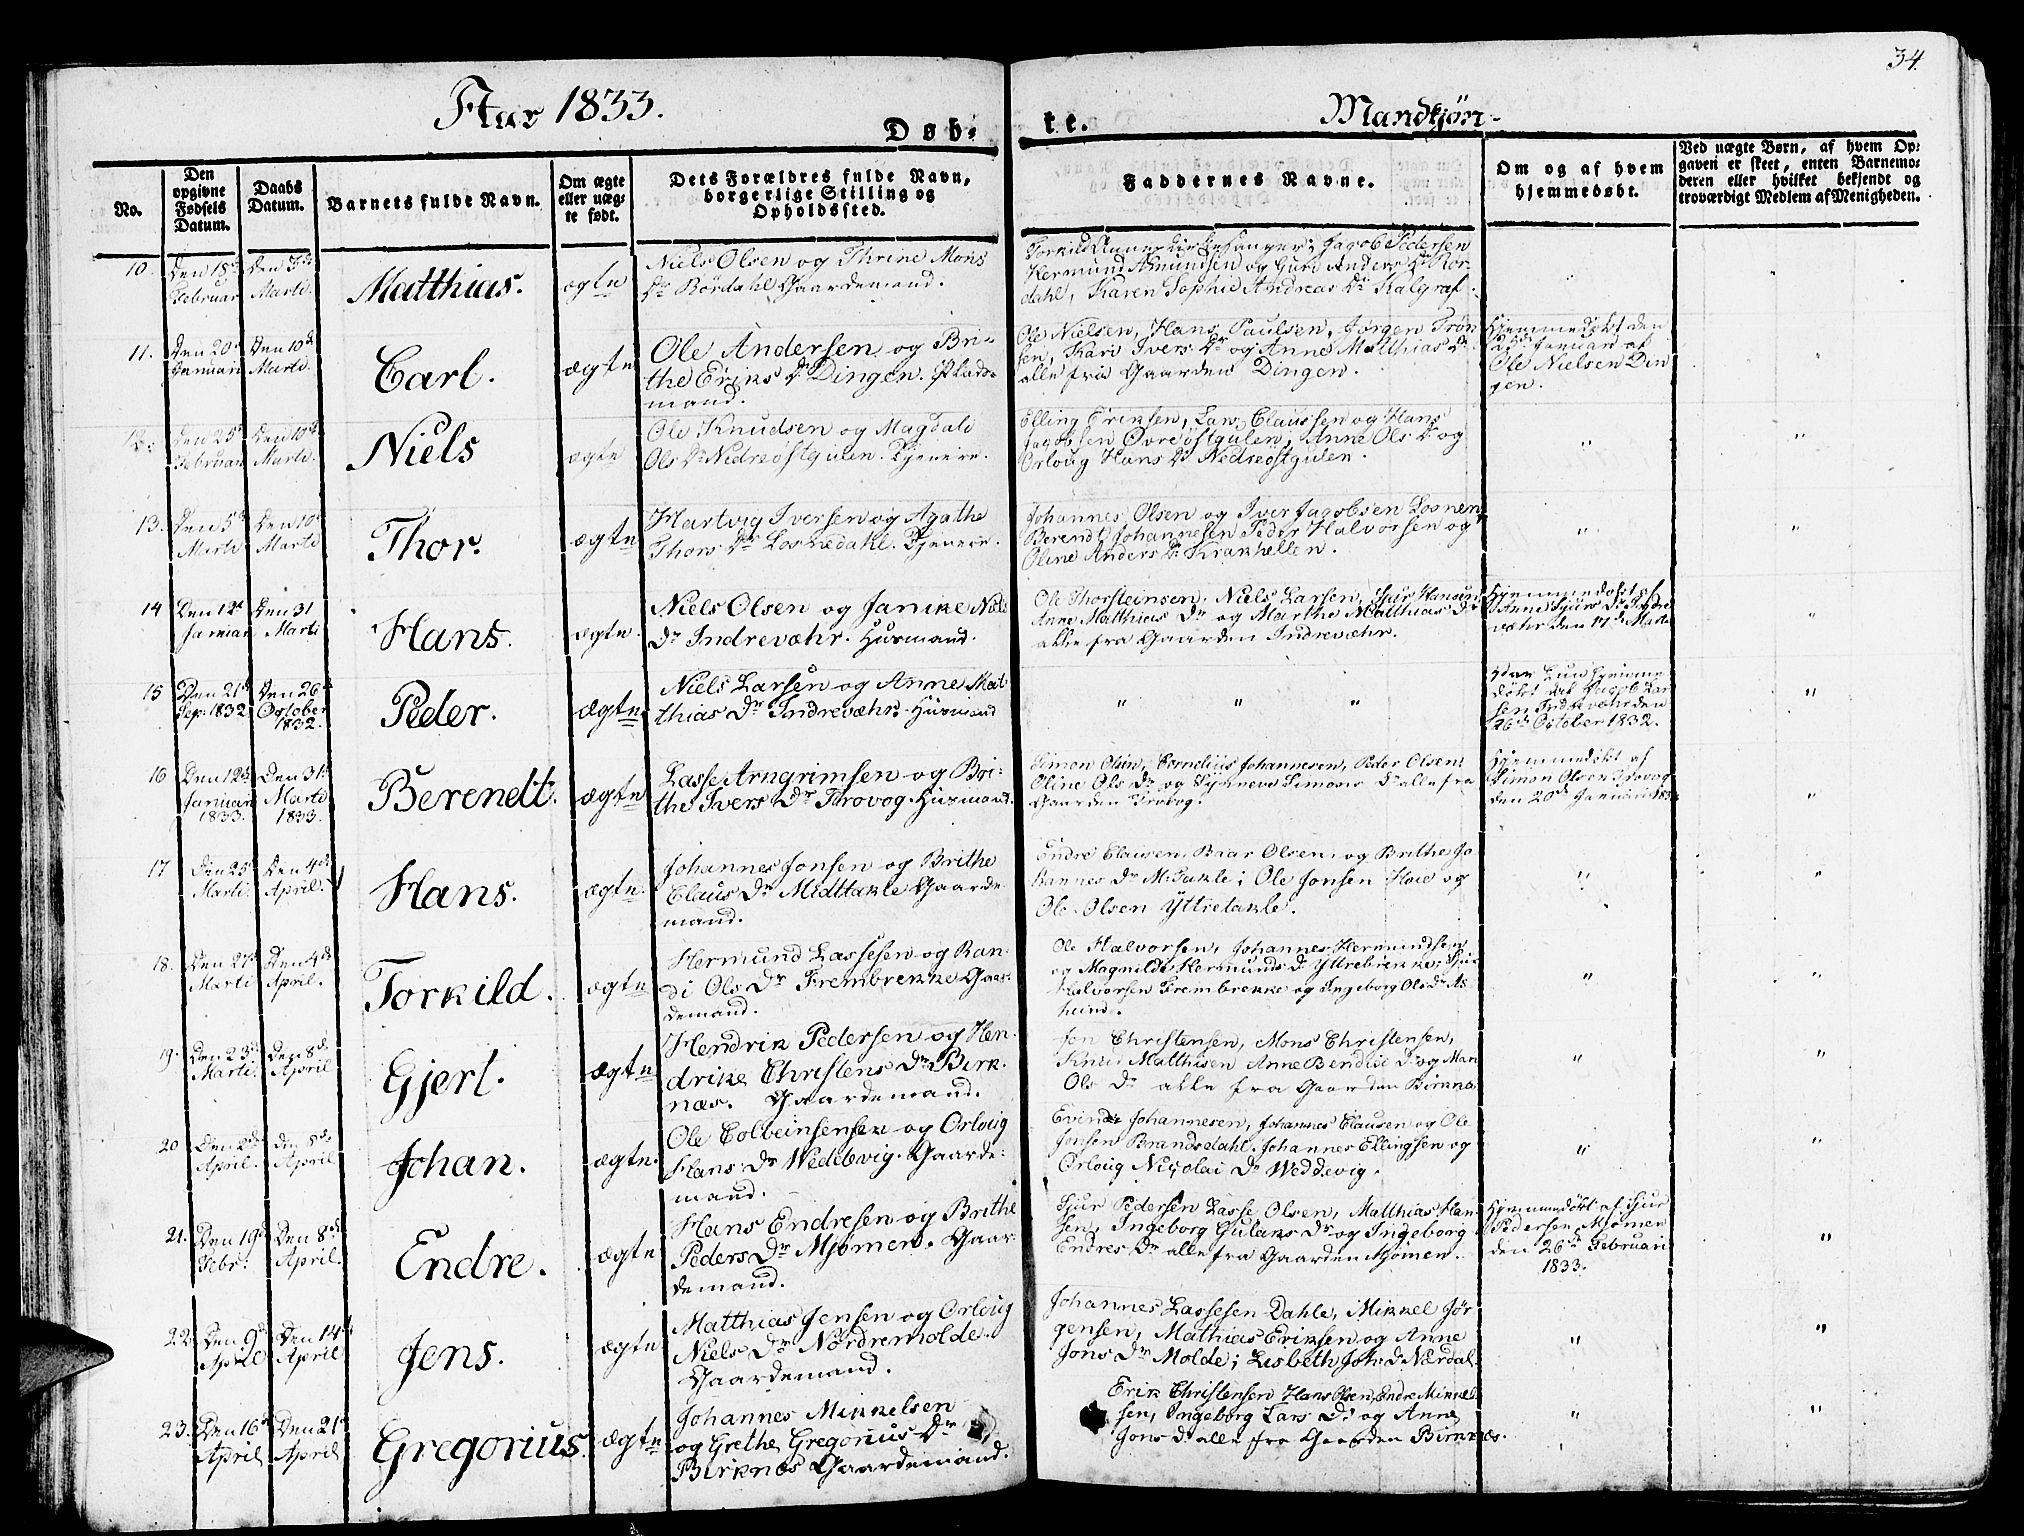 34.
Aar 1833.
Døb-
te.
Mandkjøn-
No.
Den opgivne Fødsels Datum.
Daabs Datum.
Barnets fulde Navn.
Om ægte eller uæg-te født.
Dets Forældres fulde Navn, borgerlige Stilling og Opholdssted.
Faddernes Navne.
Om og af hvem hjemmedøbt.
Ved uægte Børn, af hvem Op-
gaven er skeet, enten Barnemo-
deren eller hvilket bekjendt og
troværdigt Medlem af Menigheden.
10.
Den 18de
Februar
Den 3de
Marti.
Matthias.
ægte
Niels Olsen og Thrine Mons
Dr Bordahl Gaardemand.
Jacob Pedersen
Hermund Amundsen og Guri Anders Dr Bor-
dahl, Karen Sophie Andreas Dr Kalgraf.
11.
Den 20de
Januar
Den 10de
Marti.
Carl.
ægte
Ole Andersen og Bri-
the Eriks Dr Dingen. Plads-
mand.
Ole Nielsen, Hans Paulsen, Jørgen Trøn
sen, Kari Ivers Dr og Anne Matthias Dr
alle fra Gaarden Dingen.
Hjemmedøbt den
Januar af
Ole Nielsen Din
gen.
12.
Den 25de
Februar
Den 10de
Marti.
Niels
ægte
Ole Knudsen og Magdali
Ols Dr Nedreøstgulen. Tjenere.
Elling Eriksen, Lars Claussen og Hans
Jacobsen Øvreøstgulen, Anne Ols Dr og
Orloug Hans Dr Nedreøstgulen.
13.
Den 5de
Marti
Den 10de
Marti
Thor.
ægte
Hartvig Iversen og Agathe
Thors Dr Losnedahl. Tjenere.
Johannes Olsen og Iver Jacobsen Losnen
Berendt Johannesen Peder Halvorsen og
Oline Anders Dr Krakhellen.
14
Den 12te
Januar
Den 31
Marti
Hans.
ægte.
Niels Olsen og Janike Niels
Dr Indrevæhr. Husmand.
Ole Thorsteinsen, Niels Larsen, Sjur Hansen,
Anne Matthias Dr og Marthe Matthias Dr
alle fra Gaarden Indrevæhr.
Hjemmedøbt af
Anne Sjurs Dr Indre
væhr den 17de Marti
15
Den 21de
Sep. 1832
Den 26de
October
1832.
Peder.
ægte
Niels Larsen og Anne Mat
thias Dr Indrevæhr. Husmand
døbt Jacob Lar
sen Indrevæhr den
26de October 1832.
16
Den 12te
Januar
1833.
Den 31te
Marti
1833.
Berendt.
ægte
Lasse Arngrimsen og Bri-
the Ivers Dr Trovog. Husmand.
Simon Olsen, Cornelius Johannesen, Peder Olsen,
Oline Ols Dr og Synneve Simons Dr alle fra
Gaarden Trovog.
Hjemmedøbt af
Simon Olsen Trovog
den 20de Januari 183
17
Den 25de
Marti.
Den 4de
April.
Hans.
ægte.
Johannes Jonsen og Brithe
Claus Dr Midttakle Gaarde-
mand.
Endre Clausen, Baar Olsen, og Brithe Jo
hannes Dr M:Takle; Ole Jonsen Hoie og
Ole Olsen Yttretakle.
18.
Den 27de
Marti
Den 4de
April.
Torkild.
ægte
Hermund Lassesen og Ran-
di Ols Dr Frembrekke Gaar-
demand.
Ole Halvorsen, Johannes Hermundsen
og Magnilde Hermunds Dr Yttrebrekke; Sjur
Halvorsen Frembrekke og Ingeborg Ols Dr As-
heim.
19.
Den 23de
Marti.
Den 8de
April
Gjert.
ægte
Hendrik Pedersen og Hen-
drike Christens Dr Birk-
næs. Gaardemand.
Jon Christensen, Mons Christensen,
Knud Matthisen Anne Bendise Dr og Mari
Ols Dr alle fra Gaarden Birknæ.
20
Den 2de
April.
Den 8de
April
Johan.
ægte.
Ole Colbeinsensen og Orloug
Hans Dr Wedebvig. Gaarde-
mand.
Evind Johannesen, Johannes Clausen og Ole
Jensen Brandsdahl. Johannes Ellingsen og
Orloug Nicolai Dr Weddevig.
21.
Den 19de
Febr:
Den 8de
April.
Endre.
ægte
Hans Endresen og Brithe
Peders Dr Mjømen. Gaar-
demand.
Sjur Pedersen Lasse Olsen, Matthias Han
sen, Ingeborg Gulaks Dr og Ingeborg
Endres Dr alle fra Gaarden Mjømen.
Hjemmedøbt af Sjur
Pedersen Mjømen
den 26de Februari
1833.
22.
Den 9de
April
Den 14de
April
Jens.
ægte
Matthias Jensen og Orloug
Niels Dr Nordremolde.
Gaardemand.
Johannes Lassesen Dahle, Mikkel Jør
gensen, Mathias Eriksen og Anne
Jons Dr Molde; Lisbeth Joh: D Nærdal.
23.
Den 16de
April
Den 21de
April
Gregorius.
ægte
Johannes Mikkelsen
og Grethe Gregorius Dr
Birknæs Gaardemand.
Erik Christensen Hans Olsen, Endre Mikkel-
sen, Ingeborg Lars Dr og Anne
Jons Dr alle fra Gaarden Birknæs.